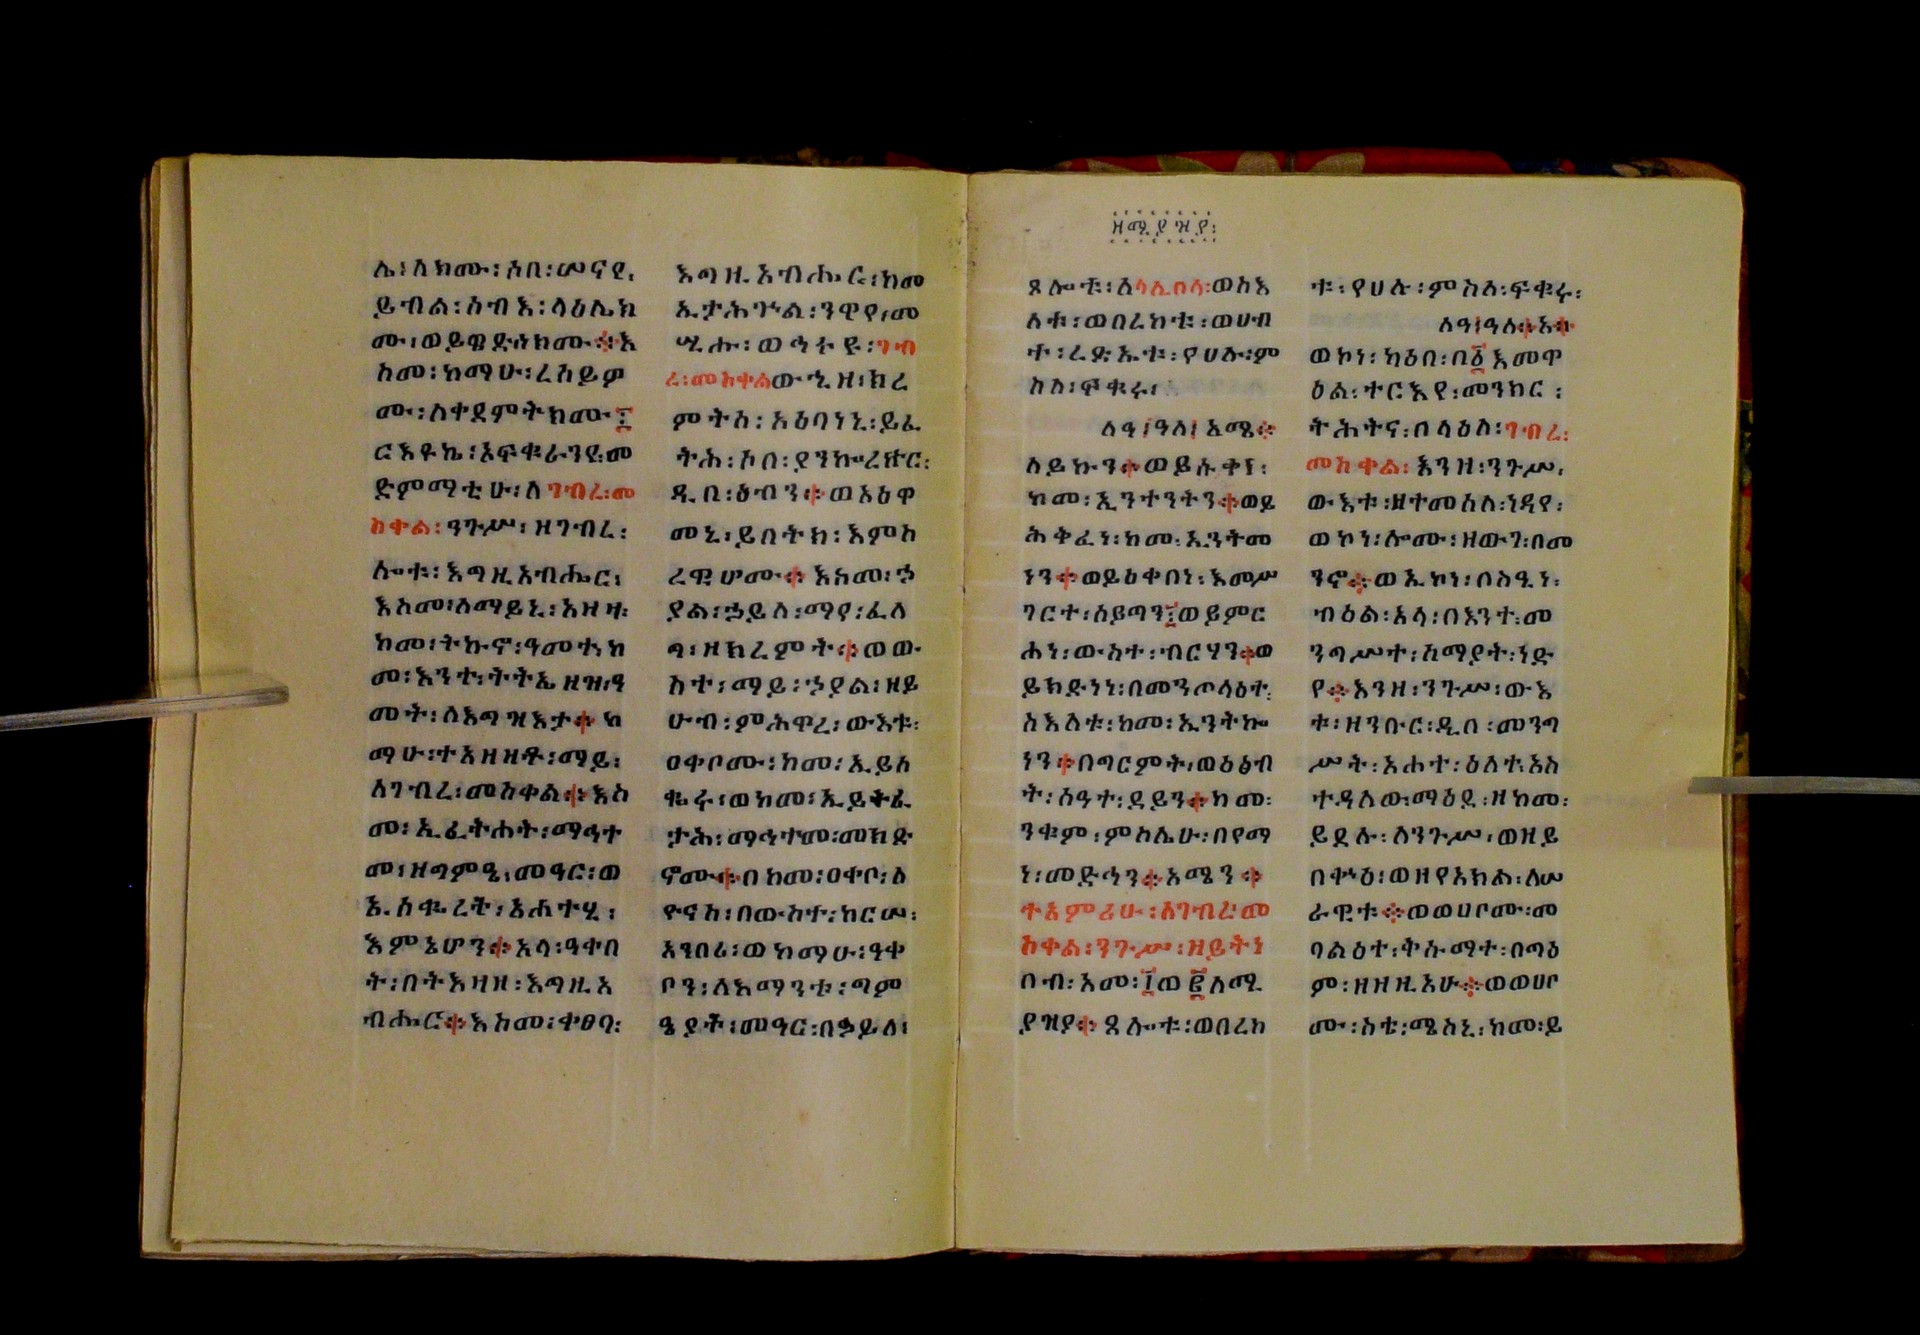 ሌ፡ለክሙ፡አበ፡ሠናይ፡
ይብል፡ስብእ፡ላዕሌክ
ሙ፡ወይዌድሱክሙ።እ
ስመ፡ከማሁ፡ረሰይዎ
ሙ፡ለቀደምትክሙ፤
ርእዩኬ፡አፍቁራንየ፡መ
ድምማቲሁ፡ለገብረ፡መ
ስቀል፡ዓጉሥ፡ዘገብረ፡
ሎቱ፡እግዚአብሔር፡
እስመ፡ለማይኒ፡አዘዛ፡
ከመ፡ትኩኖ፡ዓመተ፡ከ
መ፡እንተ፡ትትኤዘዝ፡ዓ
መት፡ለእግዝእታ።ከ
ማሁ፡ተአዘዘቶ፡ማይ፡
ለገብረ፡መስቀል።እስ
መ፡ኢፈትሐት፡ማኅተ
መ፡ዘግምዔ፡መዓር፡ወ
ኢሰቈረት፡አሐተሂ፡
እምኔሆን።አላ፡ዓቀበ
ት፡በትእዛዘ፡እግዚአ
ብሔር።እስመ፡ቀፀባ፡
እግዚአብሔር፡ከመ
ኢታሕጕል፡ንዋየ፡መ
ሢሑ፡ወኅትዩ፡ገብ
ረ፡መስቀልውኂዘ፡ክረ
ምትሰ፡አዕባነኒ፡ይፈ
ትሕ፡ኦበ፡ያንኰረኵር፡
ዲበ፡ዕብን።ወአዕዋ
መኒ፡ይበትክ፡እምስ
ረዊሆሙ።እስመ፡ኃ
ያል፡ኃይለ፡ማየ፡ፈለ
ግ፡ዘክረምት።ወው
እተ፡ማይ፡ኃያል፡ዘይ
ሁብ፡ምሕዋረ፡ውእቱ፡
ዐቀቦሙ፡ከመ፡ኢይሰ
ቈሩ፡ወከመ፡ኢይትፈ
ታሕ፡ማኅተመ፡መክድ
ኖሙ።በከመ፡ዐቀቦ፡ለ
ዮናስ፡በውስተ፡ከርሠ፡
አንበሪ፡ወከማሁ፡ዓቀ
ቦን፡ለእማንቱ፡ግም
ዔያት፡መዓር፡በኃይለ፡
ዘሚያዝያ፡
ጸሎቱ፡ለላሊበላ፡ወስእ
ለቱ፡ወበረከቱ፡ወሀብ
ተ፡ረድኤቱ፡የሀሉ፡ም
ስለ፡ፍቁሩ፡
ለዓ፤ዓለ፤አሜ።
ለይኩን።ወይሱቀነ፡
ከመ፡ኢንተንትን።ወይ
ሕቅፈነ፡ከመ፡ኢንትመ
ነን።ወይዕቀበነ፡እመሥ
ገርተ፡ሰይጣን፤ወይምር
ሐነ፡ውስተ፡ብርሃን።ወ
ይክድነነ፡በመንጦላዕተ፡
ስእለቱ፡ከመ፡ኢንትኰ
ነን።በግርምት፡ወዕፅብ
ት፡ሰዓተ፡ደይን።ከመ፡
ንቁም፡ምስሌሁ፡በየማ
ነ፡መድኅን።አሜን።
ተአምሪሁ፡ለገብረ፡መ
ስቀል፡ንጉሥ፡ዘይትነ
በብ፡አመ፡፲ወ፪ለሚ
ያዝያ።ጸሎቱ፡ወበረከ
ቱ፡የሀሉ፡ምስለ፡ፍቁሩ፡
ለዓ፤ዓለ።አ።
ወኮነ፡ካዕበ፡በ፩እመዋ
ዕል፡ተርእየ፡መንክር፡
ትሕትና፡በላዕለ፡ገብረ፡
መስቀል፡እንዘ፡ንጉሥ፡
ውእቱ፡ዘተመሰለ፡ነዳየ፡
ወኮነ፡ሎሙ፡ዘውገ፡በመ
ንኖ።ወኢኮነ፡በስኢነ፡
ብዕል፡አላ፡በእንተ፡መ
ንግሥተ፡ሰማያት፡ነድ
የ።እንዘ፡ንጉሥ፡ውእ
ቱ፡ዘንቡር፡ዲበ፡መንግ
ሥት፡አሐተ፡ዕለተ፡አስ
ተዳለው፡ማዕደ፡ዘከመ፡
ይደሉ፡ለንጉሥ፡ወዘይ
በቀኍዕ፡ወዘየአክል፡ለሠ
ራዊቱ።ወወሀቦሙ፡መ
ባልዕተ፡ቅሱማተ፡በጣዕ
ም፡ዘዘዚአሁ።ወወሀቦ
ሙ፡ስቴ፡ሜሰኒ፡ከመ፡ይ